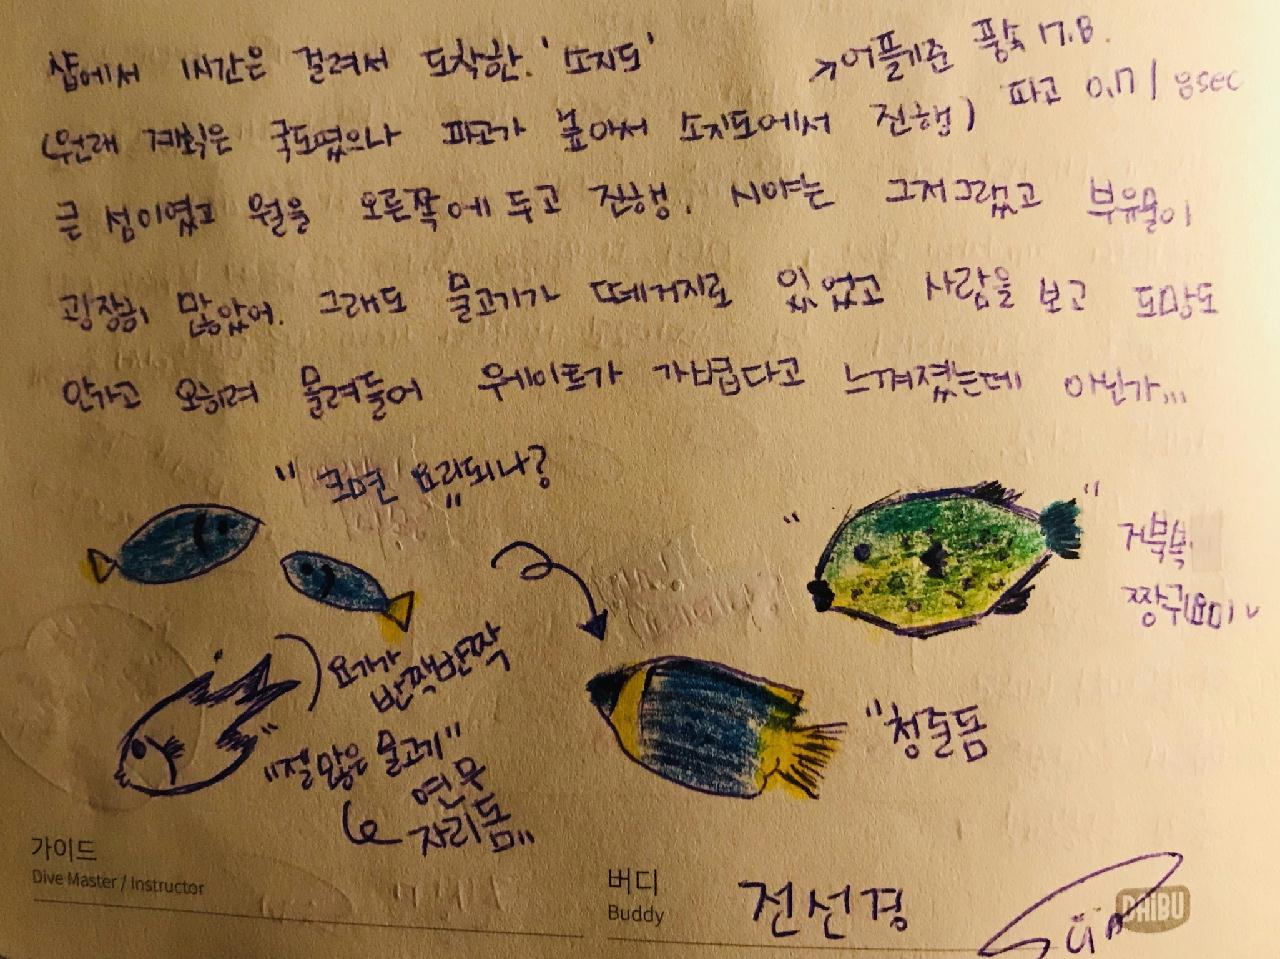 샵에서 1시간은 걸려서 도착한. '소지도'
→어플기준 풍속 17.8.
(원래 계획은 국도였으나 파고가 높아서 소지도에서 진행) 파고 0.7 / 8sec
큰 섬이였고 월을 오른쪽에 두고 진행. 시야는 그저그랬고 부유물이
굉장히 많았어. 그래도 물고기가 떼거지로 있었고 사람을 보고 도망도
안가고 오히려 몰려들어 웨이트가 가볍다고 느껴졌는데 아닌가...
"크면 요리되나?"
"거북복
짱귀요미
요기가
반짝반짝
"젤 많은 물고기"
연무
자리돔"
"청줄돔
가이드
Dive Master / Instructor
버디
Buddy
전선경
DAIBU